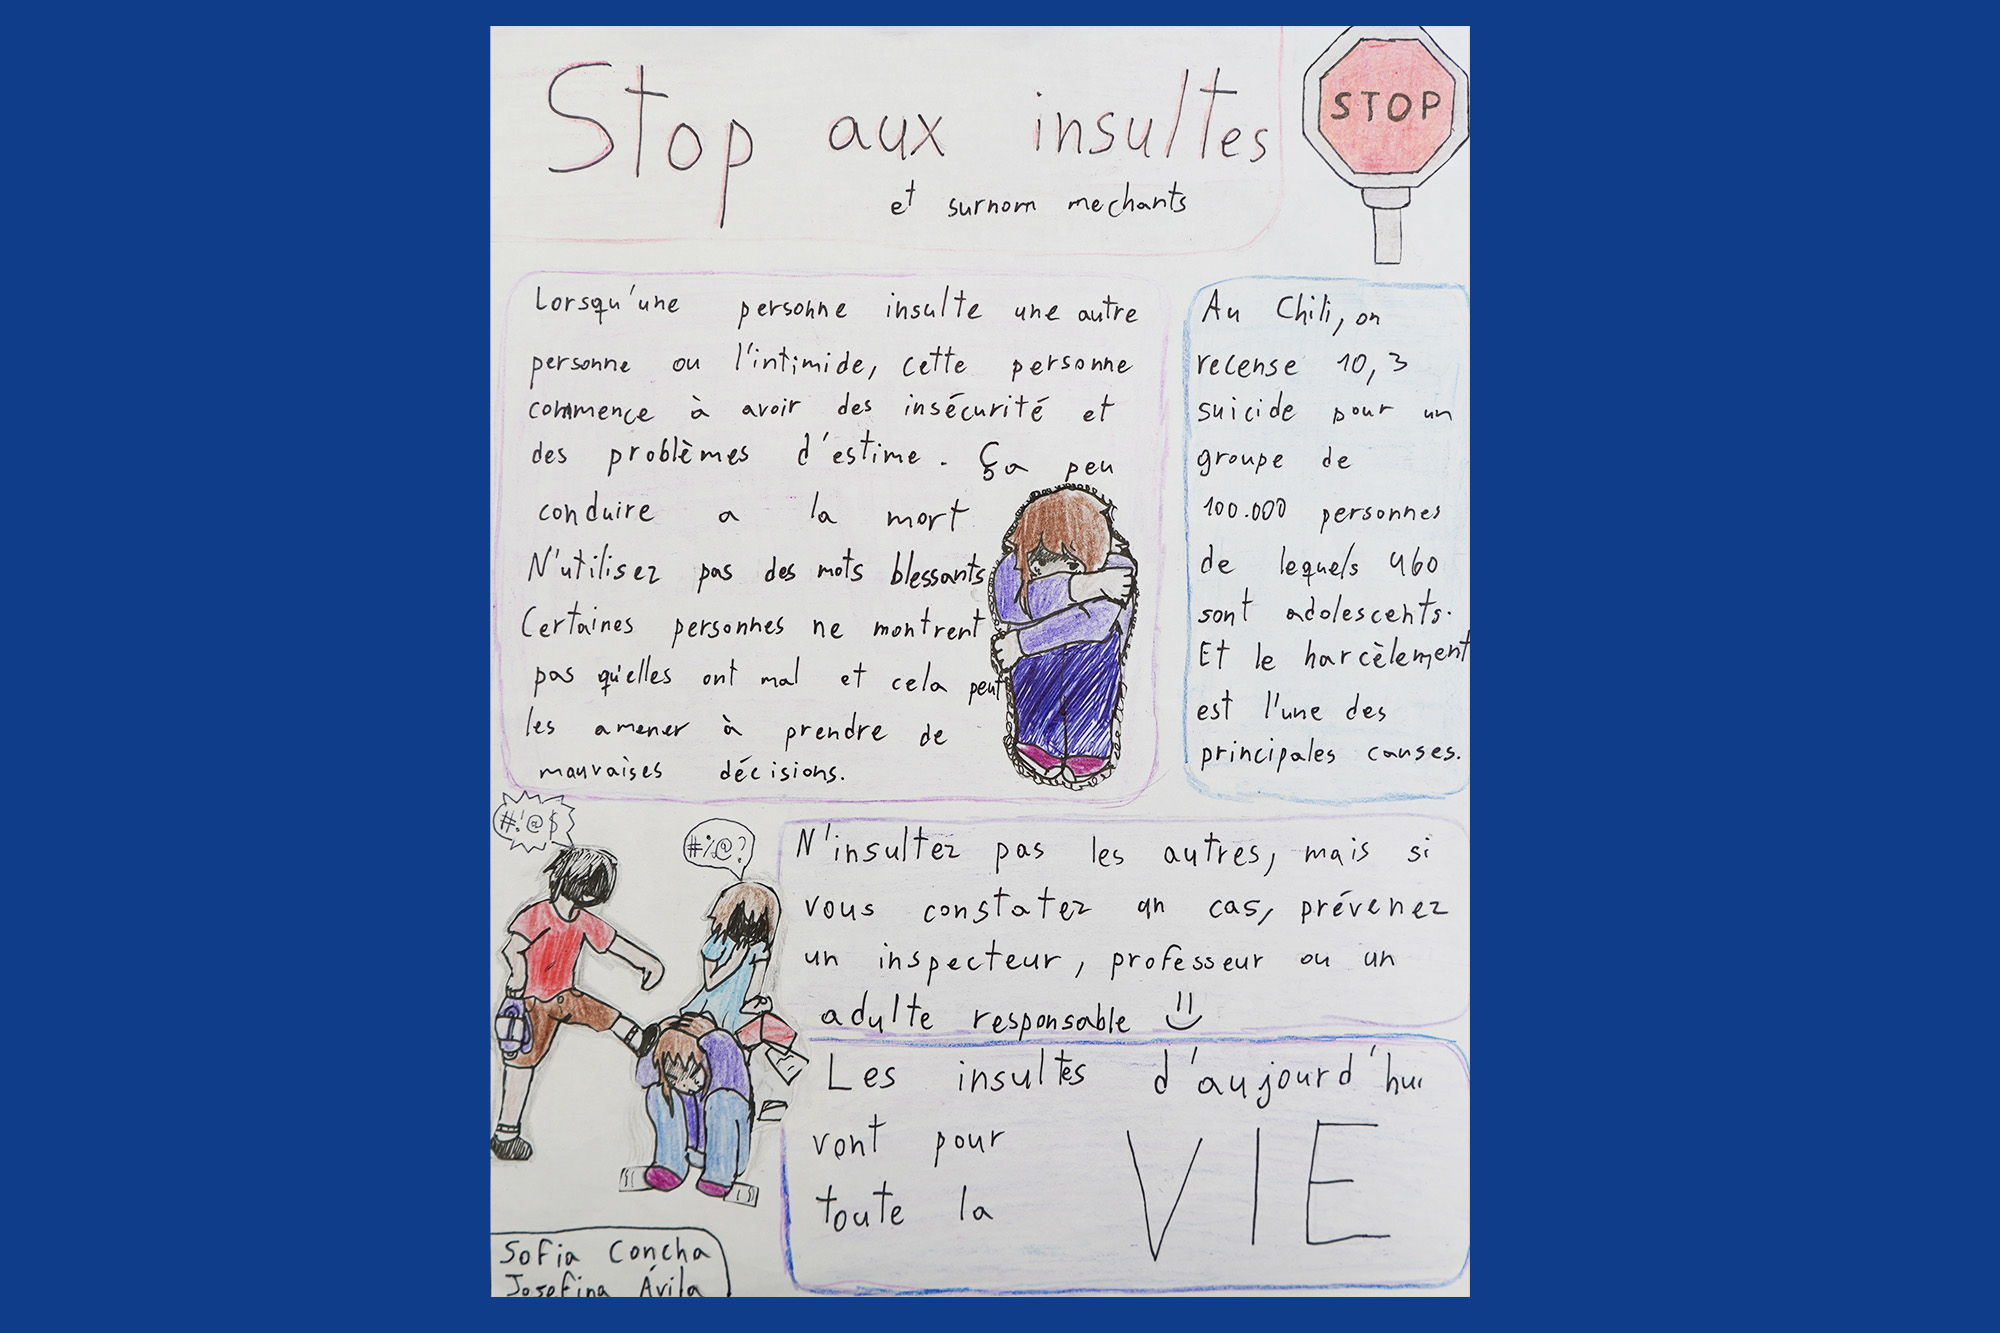 Stop aux insultes
et surnom mechants
STOP
Lorsqu'une personne insulte une autre
personne ou l'intimide, cette personne
commence à avoir des insécurité et
des problèmes d'estime. Ça peu
conduire a la mort
N'utilisez pas des mots blessants
Certaines personnes ne montrent
pas qu'elles ont mal et cela peut
les amener à prendre de
mauvaises décisions.
Au Chili, on
recense 10,3
suicide pour un
groupe de
100.000 personnes
de lequels 460
sont adolescents.
Et le harcèlement
est l'une des
principales causes.
#!@$
#%@?
N'insultez pas les autres, mais si
vous constatez un cas, prévenez
un inspecteur, professeur ou un
adulte responsable
Les insultes d'aujourd'hui
vont pour
toute la VIE
Sofia Concha
Josefina Ávila